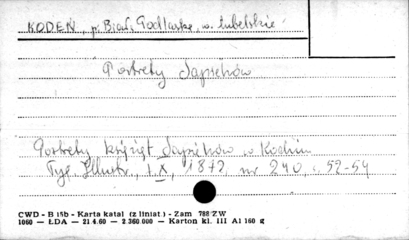 KODEŃ, p. Biał. Podlaska, w. lubelskie
Portrety Sapiehów
Portrety książąt Sapiehów w Kodniu
Tyg. Illustr., t. X, 1872, nr 240 s. 52-54
CWD - B 15b - Karta katal (z liniat.) - Zam 788 ZW
1060 — ŁDA — 21.4.60 — 2 360.000 — Karton kl. III A1 160 g